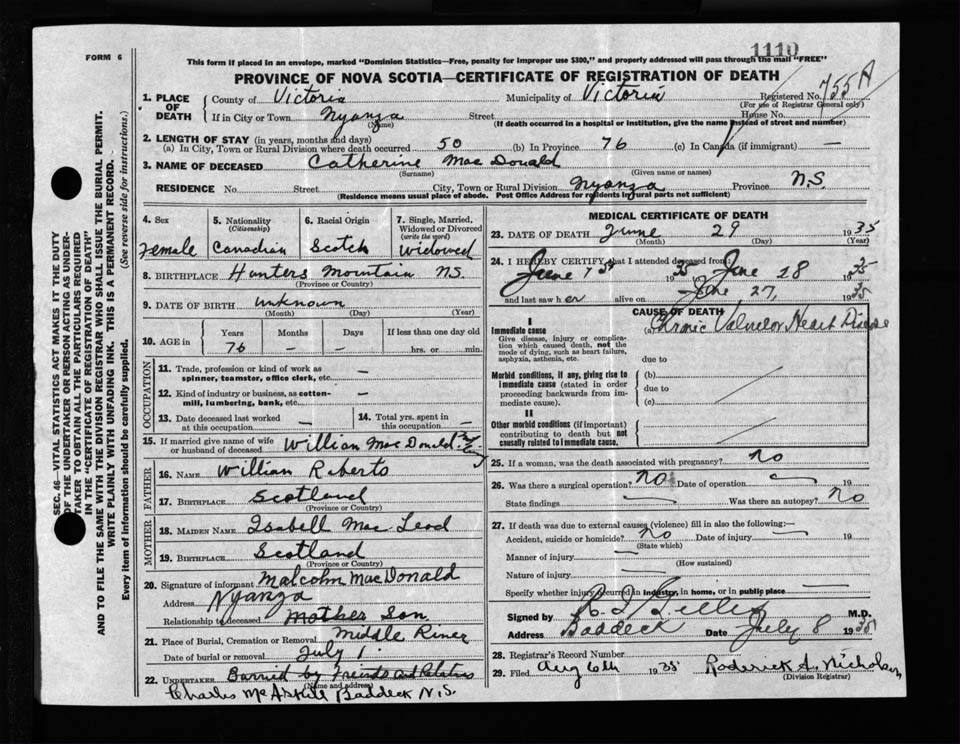 1110
FORM 6
This form if placed in an envelope, marked "Dominion Statistics—Free, penalty for improper use $300," and properly addressed will pass through the mail "FREE"
PROVINCE OF NOVA SCOTIA—CERTIFICATE OF REGISTRATION OF DEATH
SEC. 46—VITAL STATISTICS ACT MAKES IT THE DUTY
OF THE UNDERTAKER OR PERSON ACTING AS UNDER-
TAKER TO OBTAIN ALL THE PARTICULARS REQUIRED
IN THE "CERTIFICATE OF REGISTRATION OF DEATH"
AND TO FILE THE SAME WITH THE DIVISION REGISTRAR WHO SHALL ISSUE THE BURIAL PERMIT.
WRITE PLAINLY WITH UNFADING INK. THIS IS A PERMANENT RECORD.
Every item of information should be carefully supplied. (See reverse side for instructions.)
1. PLACE OF DEATH County of Victoria Municipality of Victoria Registered No. 755A
(For use of Registrar General only)
If in City or Town Nyanza Street House No.
(Name) (If death occurred in a hospital or institution, give the name instead of street and number)
2. LENGTH OF STAY (in years, months and days)
(a) In City, Town or Rural Division where death occurred 50 (b) In Province 76 (c) In Canada (if immigrant) —
3. NAME OF DECEASED Catherine Mac Donald
(Surname) (Given name or names)
RESIDENCE No. Street City, Town or Rural Division Nyanza Province N.S.
(Residence means usual place of abode. Post Office Address for residents in rural parts not sufficient)
4. Sex
Female
5. Nationality
(Citizenship)
Canadian
6. Racial Origin
Scotch
7. Single, Married,
Widowed or Divorced
(write the word)
Widowed
8. BIRTHPLACE Hunters Mountain N.S.
(Province or Country)
9. DATE OF BIRTH unknown
(Month) (Day) (Year)
10. AGE in
Years Months Days If less than one day old
76 — — hrs. or min.
OCCUPATION
11. Trade, profession or kind of work as
spinner, teamster, office clerk, etc. —
12. Kind of industry or business, as cotton-
mill, lumbering, bank, etc. —
13. Date deceased last worked
at this occupation —
14. Total yrs. spent in
this occupation —
15. If married give name of wife
or husband of deceased William Mac Donald
FATHER
16. NAME William Roberts
17. BIRTHPLACE Scotland
(Province or Country)
MOTHER
18. MAIDEN NAME Isabell Mac Leod
19. BIRTHPLACE Scotland
(Province or Country)
20. Signature of informant Malcolm MacDonald
Address Nyanza
Relationship to deceased Mother Son
21. Place of Burial, Cremation or Removal Middle River
Date of burial or removal July 1
22. UNDERTAKER Burried by Friends and Relatives
(Name and address)
Charles McAskill Baddeck N.S.
MEDICAL CERTIFICATE OF DEATH
23. DATE OF DEATH June 29 1935
(Month) (Day) (Year)
24. I HEREBY CERTIFY that I attended deceased from:
June 1st 35 to June 28 1935
and last saw her alive on June 27, 1935
CAUSE OF DEATH
I
Immediate cause
Give disease, injury or complica-
tion which caused death, not the
mode of dying, such as heart failure,
asphyxia, asthenia, etc.
(a) Chronic Valvular Heart Disease
due to
Morbid conditions, if any, giving rise to
immediate cause (stated in order
proceeding backwards from im-
mediate cause).
(b)
due to
(c)
II
Other morbid conditions (if important)
contributing to death but not
causally related to immediate cause.
25. If a woman, was the death associated with pregnancy? no
26. Was there a surgical operation? no Date of operation — 19
State findings — Was there an autopsy? no
27. If death was due to external causes (violence) fill in also the following:—
Accident, suicide or homicide? no Date of injury — 19
(State which)
Manner of injury —
(How sustained)
Nature of injury —
Specify whether injury occurred in industry, in home, or in public place —
Signed by M.D.
Address Baddeck Date July 8 1935
28. Registrar's Record Number
29. Filed Aug 6th 1935 Roderick A. Nicholson
(Division Registrar)